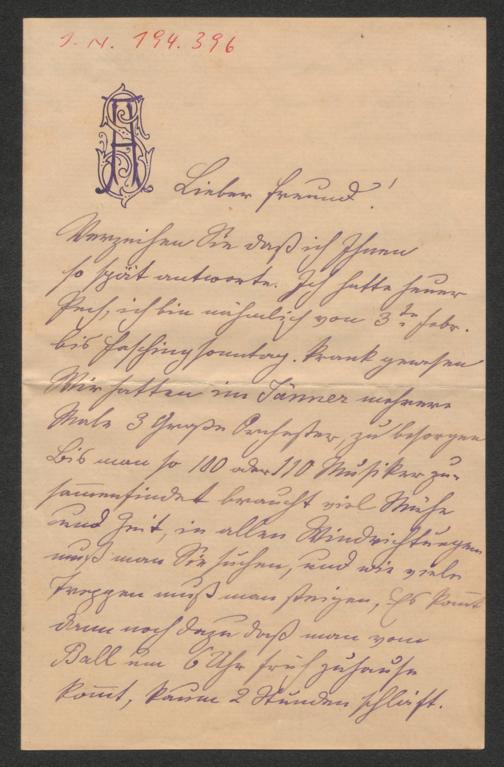 I. N. 194.396
Lieber Freund!
Verzeihen Sie daß ich Ihnen
so spät antworte. Ich hatte heuer
Pech, ich bin nähmlich von 3ten Febr.
bis Faschingsonntag. krank gewesen
Wir hatten im Jänner mehrere
Male 3 Große Orchester, zu besorgen
Bis man so 100 oder 110 Musiker zu-
sammenfindet braucht viel Mühe
und Zeit, in allen Windrichtungen
muß man Sie suchen, und wie viele
Treppen muß man steigen, Es komt
dann noch dazu daß man vom
Ball um 6 Uhr früh zuhause
komt, kaum 2 Stunden schläft.